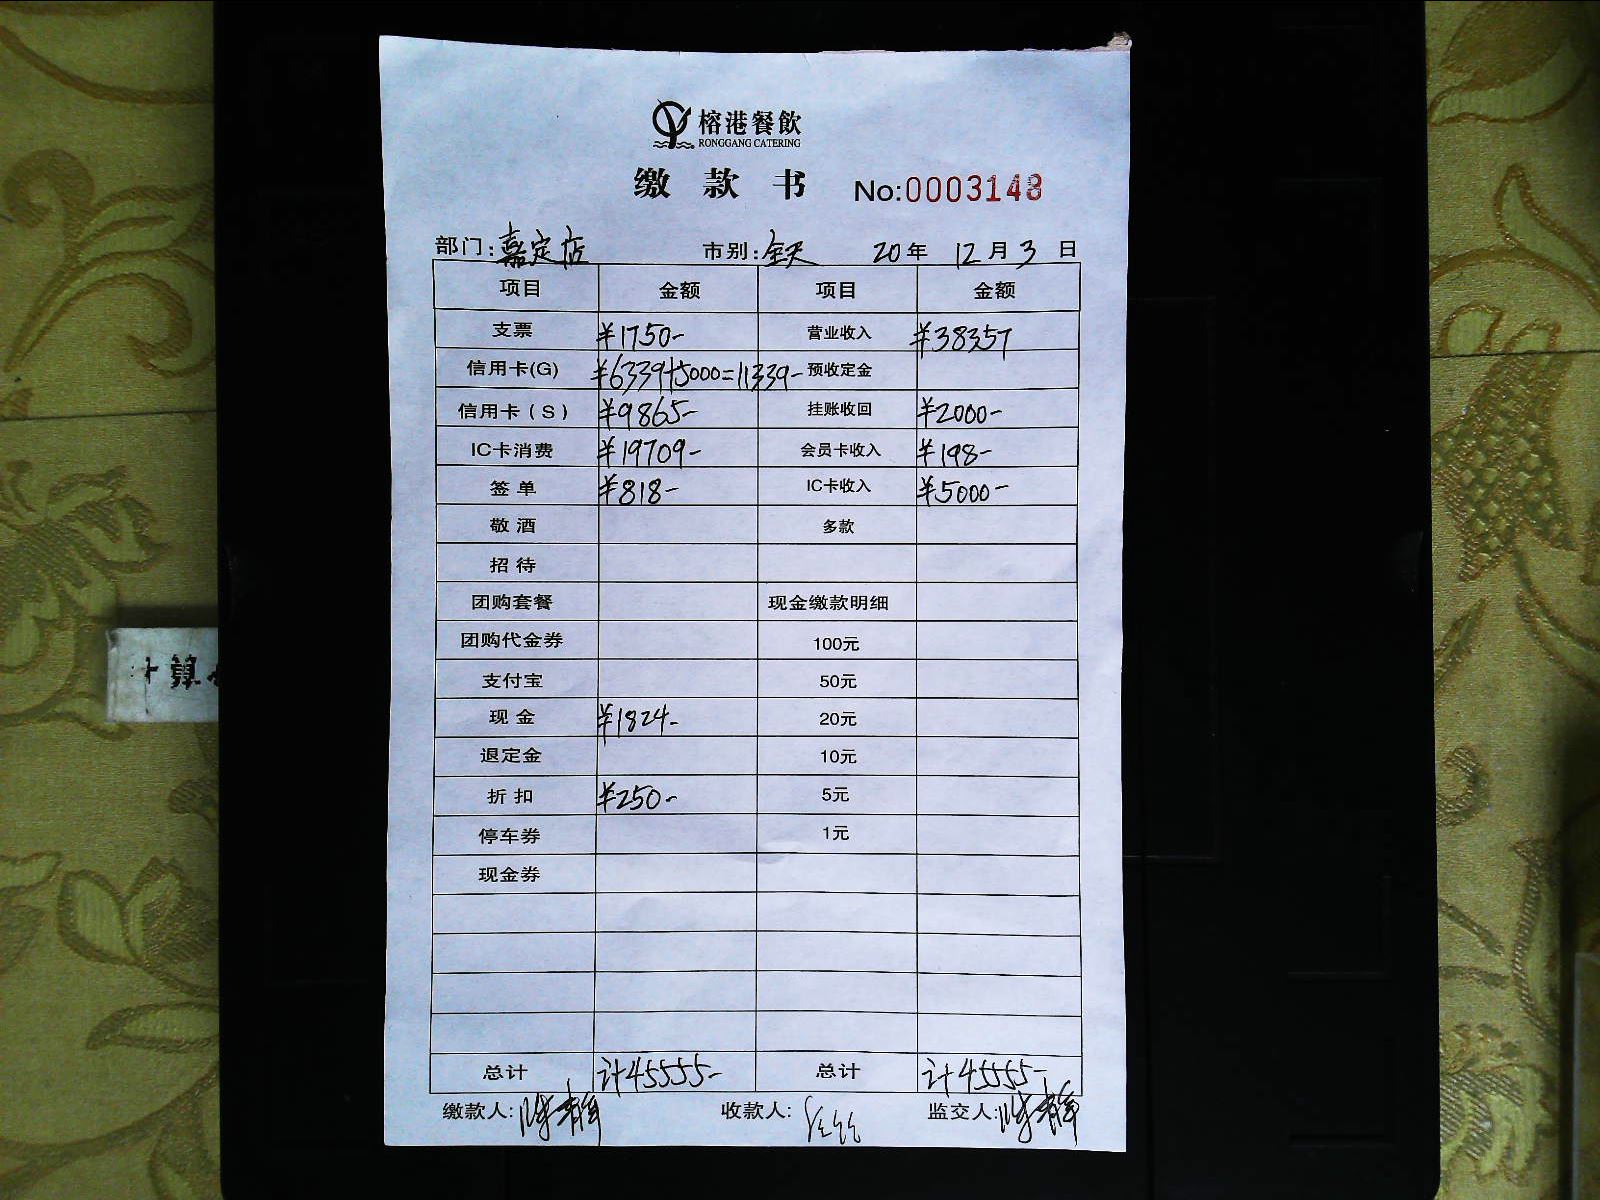 榕港餐飲
RONGGANG CATERING
缴款书 No:0003148
部门:嘉定店 市别:全天 20年 12月 3日
项目 金额 项目 金额
支票 ¥1750- 营业收入 ¥38357
信用卡(G) ¥6339+5000=11339- 预收定金
信用卡(S) ¥9865- 挂账收回 ¥2000-
IC卡消费 ¥19709- 会员卡收入 ¥198-
签单 ¥818- IC卡收入 ¥5000-
敬酒 多款
招待
团购套餐 现金缴款明细
团购代金券 100元
支付宝 50元
现金 ¥1824- 20元
退定金 10元
折扣 ¥250- 5元
停车券 1元
现金券
总计 计45555- 总计 计45555-
缴款人: 收款人: 监交人:
计算